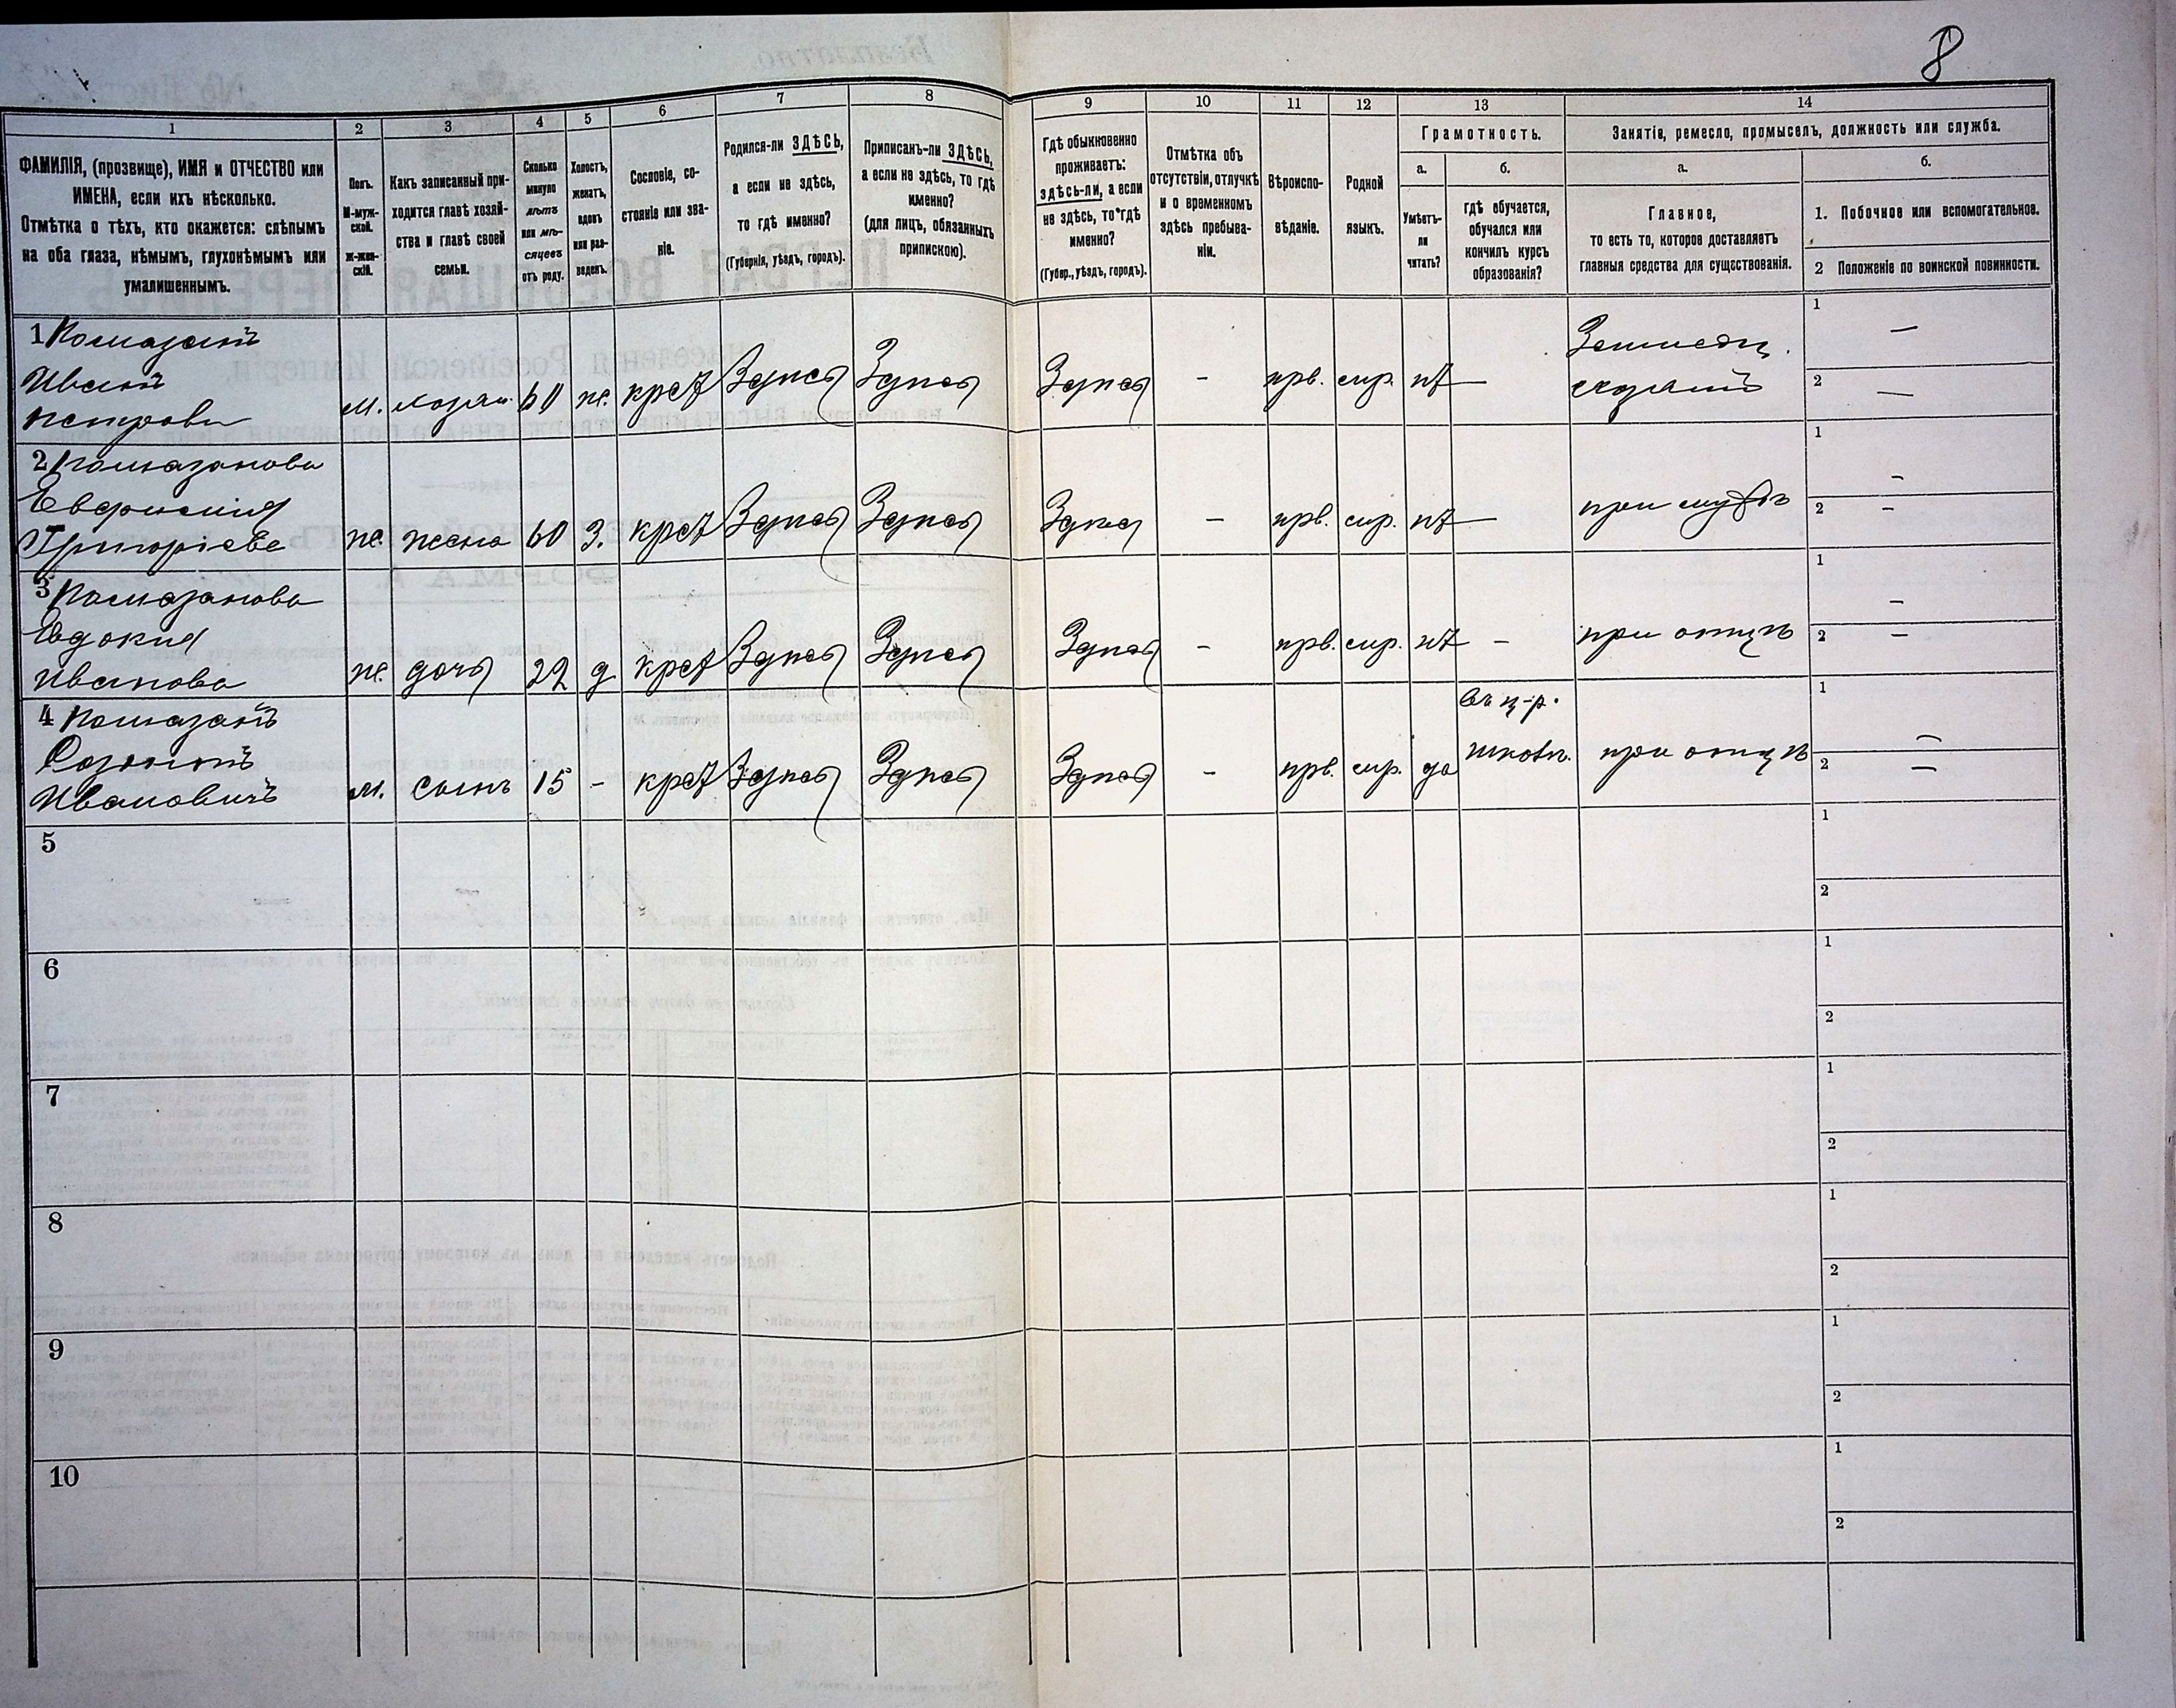 8
1
2
3
4
5
6
7
8
9
10
11
12
13
14
ФАМИЛІЯ, (прозвище), ИМЯ и ОТЧЕСТВО или
ИМЕНА, если ихъ нѣсколько.
Отмѣтка о тѣхъ, кто окажется: слѣпымъ
на оба глаза, нѣмымъ, глухонѣмымъ или
умалишеннымъ.
Полъ.
М-муж-
ской.
ж-жен-
скій.
Какъ записанный при-
ходится главѣ хозяй-
ства и главѣ своей
семьи.
Сколько
минуло
лѣтъ
или мѣ-
сяцевъ
отъ роду.
Холостъ,
женатъ,
вдовъ
или раз-
веденъ.
Сословіе, со-
стояніе или зва-
ніе.
Родился-ли ЗДѢСЬ,
а если не здѣсь,
то гдѣ именно?
(Губернія, уѣздъ, городъ).
Приписанъ-ли ЗДѢСЬ,
а если не здѣсь, то гдѣ
именно?
(для лицъ, обязанныхъ
припискою).
Гдѣ обыкновенно
проживаетъ:
здѣсь-ли, а если
не здѣсь, то гдѣ
именно?
(Губер., уѣздъ, городъ).
Отмѣтка объ
отсутствіи, отлучкѣ
и о временномъ
здѣсь пребыва-
ніи.
Вѣроиспо-
вѣданіе.
Родной
языкъ.
Грамотность.
а.
Умѣетъ-
ли
читать?
б.
гдѣ обучается,
обучался или
кончилъ курсъ
образованія?
Занятія, ремесло, промыселъ, должность или служба.
а.
Главное,
то есть то, которое доставляетъ
главныя средства для существованія.
б.
1. Побочное или вспомогательное.
2 Положеніе по воинской повинности.
1 Помазанъ
Иванъ
петровъ
м. хозяи 60 ж. крст Здѣсь Здѣсь Здѣсь - прв. мр. нѣт —
1 —
2 —
2 Помазанова
Евфимия
Григоріева
ж. жена 60 З. крст Здѣсь Здѣсь Здѣсь - прв. мр. нѣт — при мужѣ
1 -
2 -
3 Помазанова
Евдокия
Иванова
ж. дочь 22 д крст Здѣсь Здѣсь Здѣсь - прв. мр. нѣт - при отцѣ
1 -
2 -
4 Помазанъ
Ивановичъ
м. сынъ 15 - крст Здѣсь Здѣсь Здѣсь - прв. мр. да
въ ц-р.
школѣ.
при отцѣ
1 -
2 -
5
1
2
6
1
2
7
1
2
8
1
2
9
1
2
10
1
2